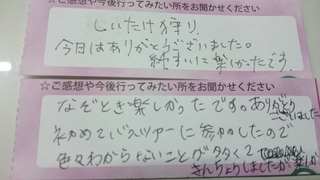 ☆ご感想や今後行ってみたい所をお聞かせください
しいたけ狩り
今日はありがとうございました。
純すいに楽しかったです。
☆ご感想や今後行ってみたい所をお聞かせください
なぞとき楽しかったです。ありがとうございました
初めてバスツアーに参加したので
色々わからないことグタグタ
きんちょうしましたが楽しか